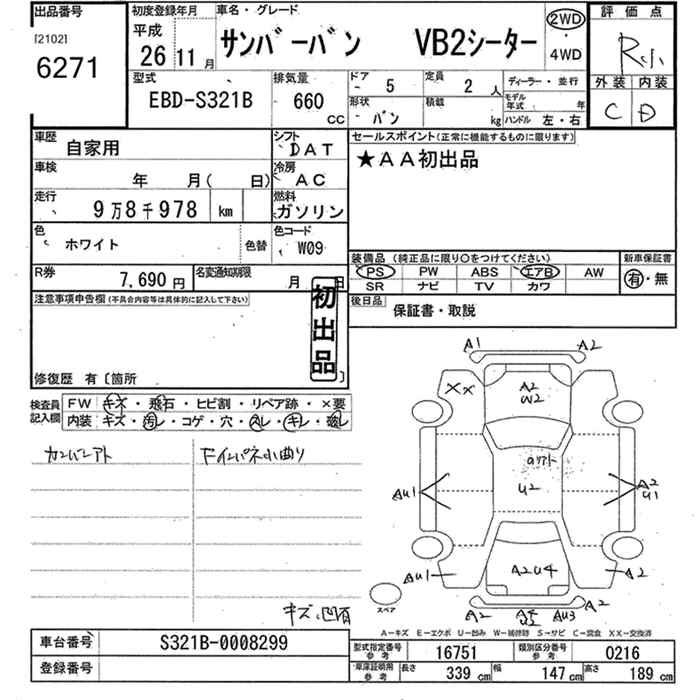 出品番号
[2102]
6271
初度登録年月
平成
26 11 月
車名・グレード
サンバーバン VB2シーター
2WD
・
4WD
評価点
R
外装 内装
C D
型式
EBD-S321B
排気量
660
CC
ドア
5
形状
バン
定員
2 人
積載
kg
ディーラー・並行
モデル年式 年
ハンドル 左・右
車歴
自家用
シフト
DAT
車検
年 月( 日)
冷房
AC
走行
9万8千978 km
燃料
ガソリン
色
ホワイト
色替
色コード
W09
R券
7,690 円
名変通知期限
月 日
セールスポイント(正常に機能するものに限ります)
★AA初出品
装備品 (純正品に限り○をつけてください)
PS PW ABS エアB AW
SR ナビ TV カワ
新車保証書
有・無
後日品
保証書・取説
注意事項申告欄(不具合内容等は具体的に記入して下さい)
初出品
修復歴 有〔箇所 〕
検査員記入欄
FW キズ・飛石・ヒビ割・リペア跡・×要
内装 キズ・汚レ・コゲ・穴・スレ・キレ・破レ
A1
A2
XX
A2
W2
U2
AU1
A2
U1
AU1
A2U4
A2
A2
AU3
A2
キズ、凹有
スペア
A―キズ E―エクボ U―凹み W―補修跡 S―サビ C―腐食 XX―交換済
車台番号
S321B-0008299
登録番号
型式指定番号
参考
16751
類別区分番号
参考
0216
車庫証明用
参考
長さ 339 cm 幅 147 cm 高さ 189 cm